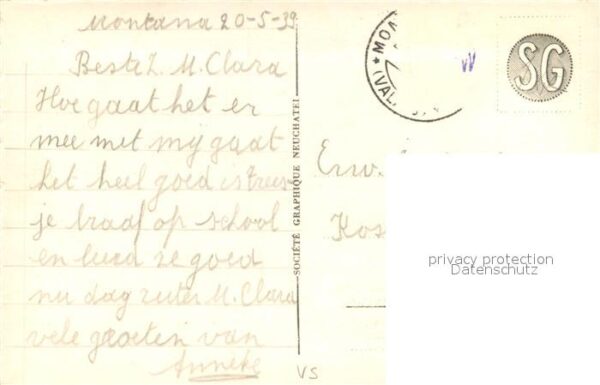 Montana 20-5-39
Beste Z. M. Clara
Hoe gaat het er
mee met mij gaat
het heel goed is Trees-
je braaf op school
en leerd ze goed
nu dag zuter M. Clara
vele groeten van
Anneke
SOCIÉTÉ GRAPHIQUE NEUCHATEL
VS
SG
Eerw.
privacy protection
Datenschutz